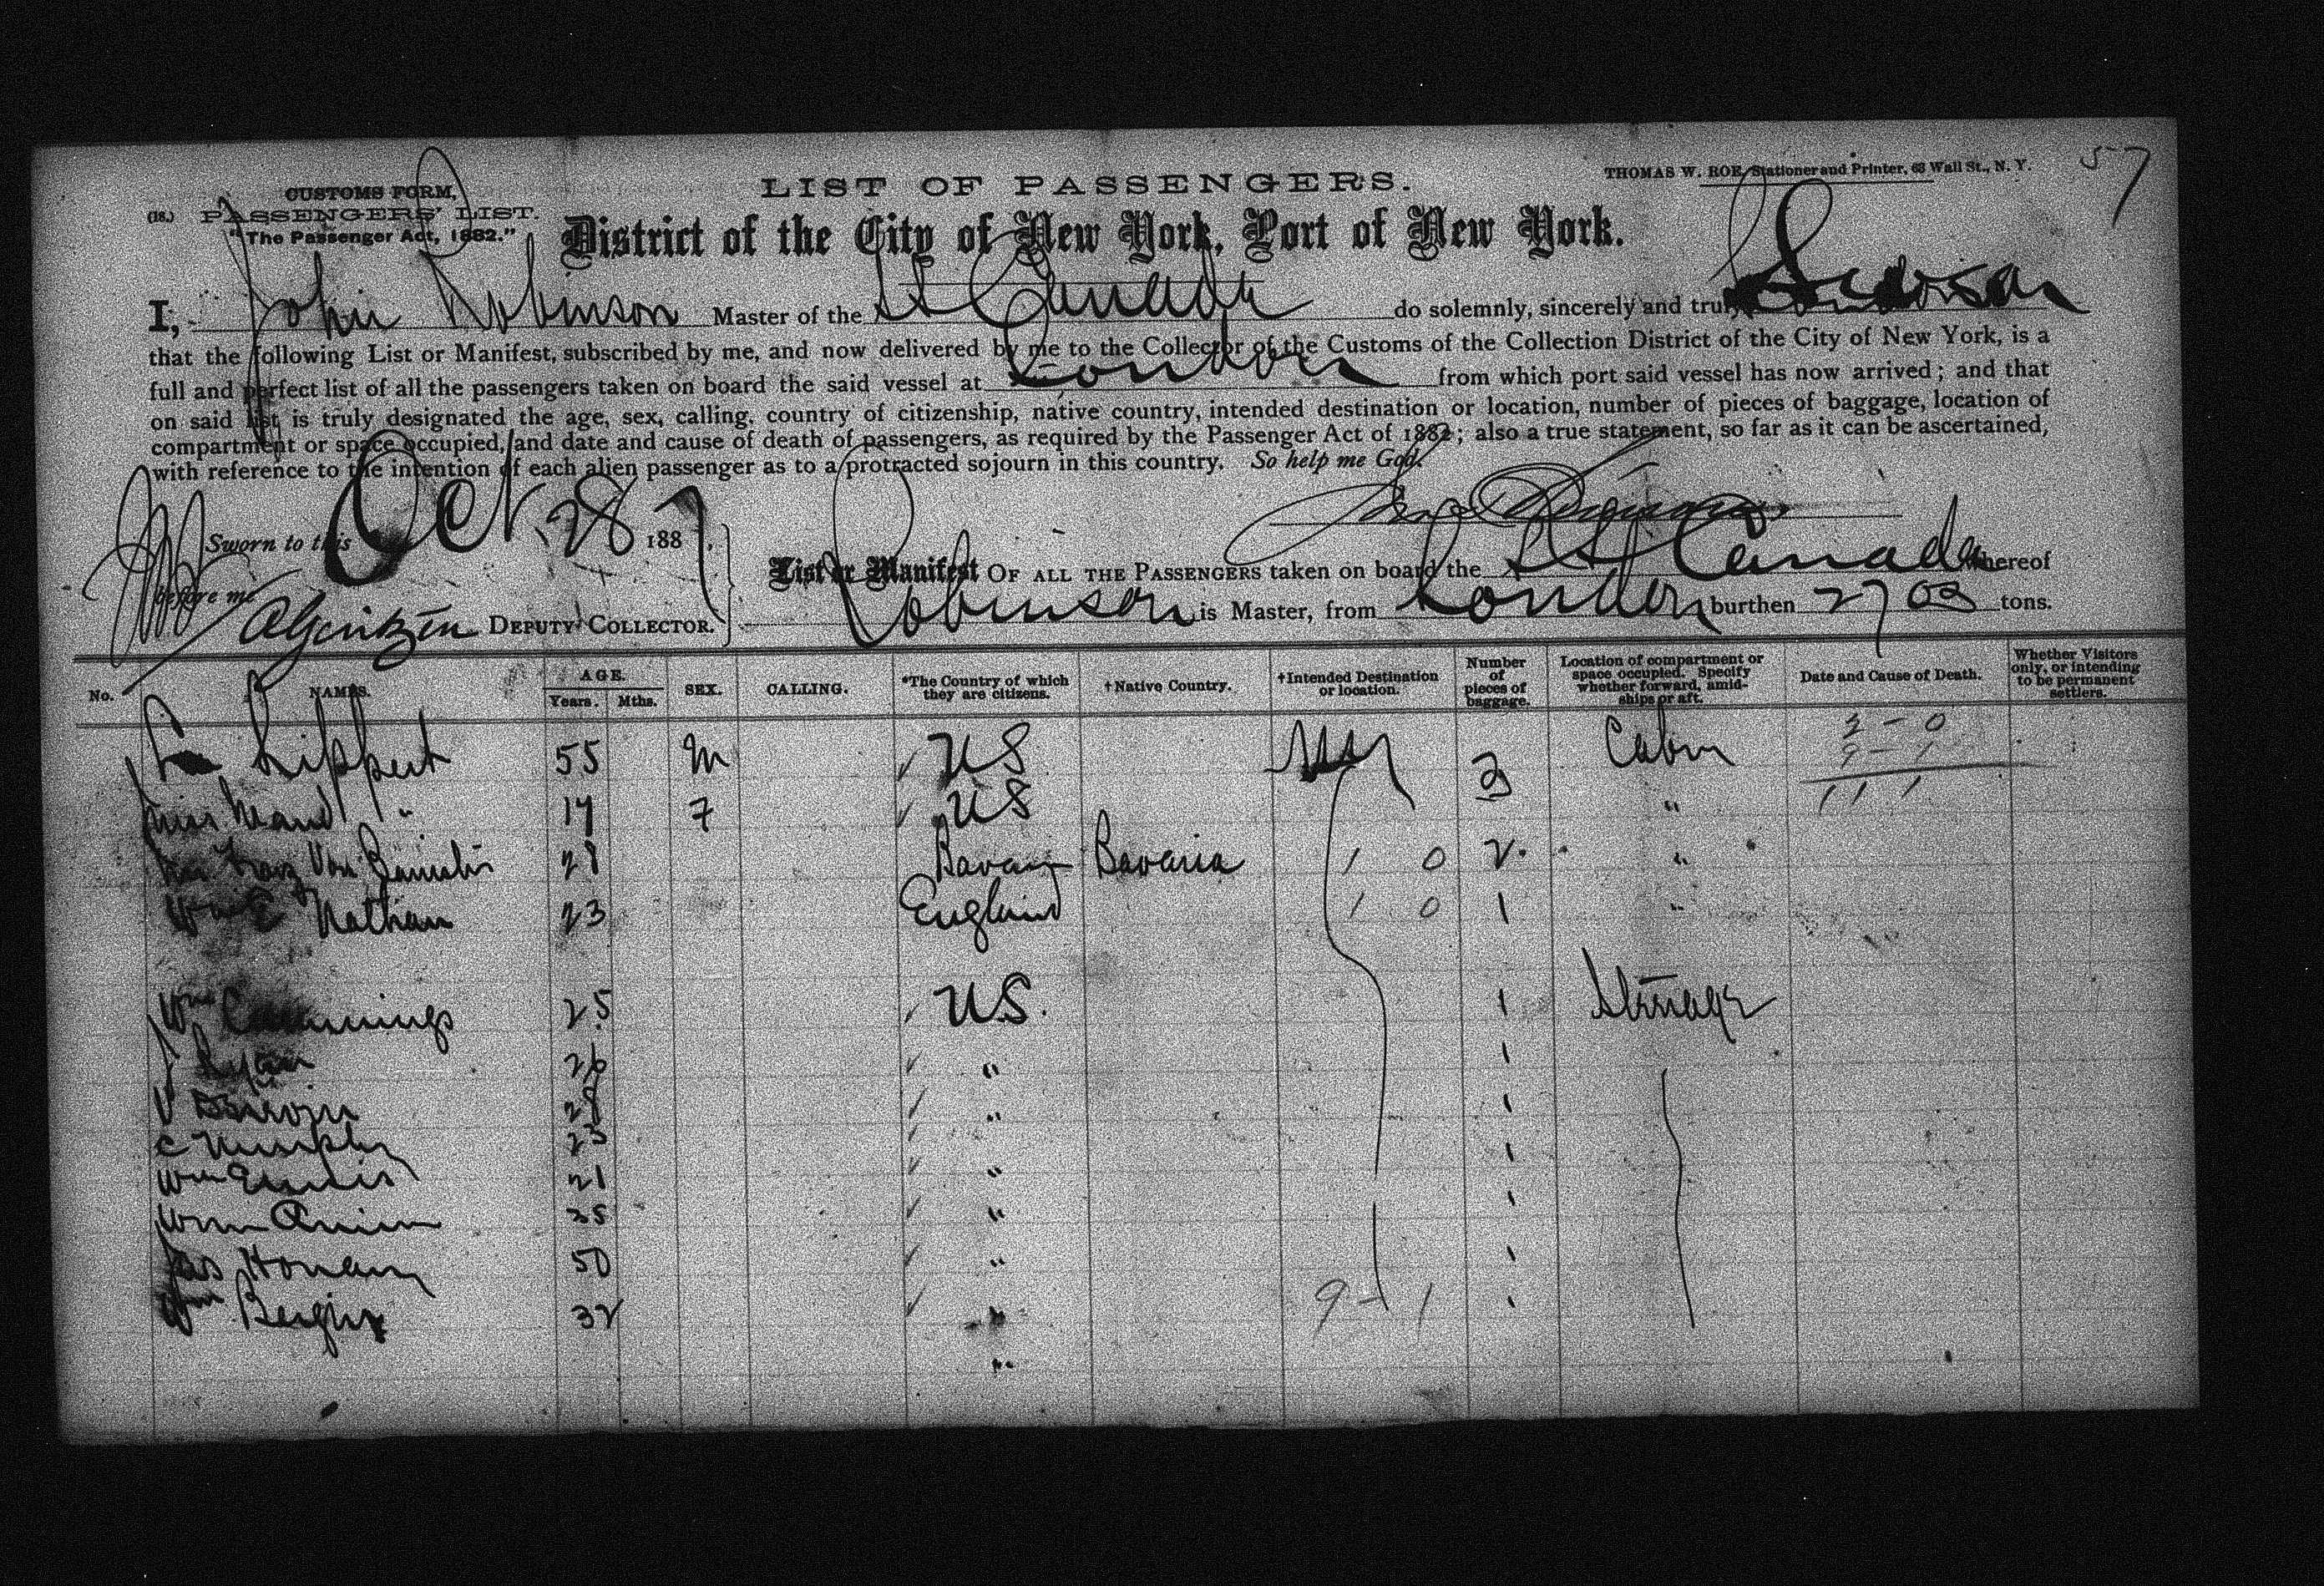 57
CUSTOMS FORM,
(18.) PASSENGERS' LIST.
"The Passenger Act, 1882."
LIST OF PASSENGERS.
THOMAS W. ROE, Stationer and Printer, 63 Wall St., N. Y.
District of the City of New York, Port of New York.
I, John Robinson Master of the SS Canada do solemnly, sincerely and truly
that the following List or Manifest, subscribed by me, and now delivered by me to the Collector of the Customs of the Collection District of the City of New York, is a
full and perfect list of all the passengers taken on board the said vessel at London from which port said vessel has now arrived; and that
on said list is truly designated the age, sex, calling, country of citizenship, native country, intended destination or location, number of pieces of baggage, location of
compartment or space occupied, and date and cause of death of passengers, as required by the Passenger Act of 1882; also a true statement, so far as it can be ascertained,
with reference to the intention of each alien passenger as to a protracted sojourn in this country. So help me God.
Sworn to this Oct. 28 1887,
before me
DEPUTY COLLECTOR.
List or Manifest OF ALL THE PASSENGERS taken on board the SS Canada whereof
Robinson is Master, from London burthen 2703 tons.
No. NAMES. AGE. Years. Mths. SEX. CALLING. *The Country of which they are citizens. †Native Country. †Intended Destination or location. Number of pieces of baggage. Location of compartment or space occupied. Specify whether forward, amidships or aft. Date and Cause of Death. Whether Visitors only, or intending to be permanent settlers.
Lippert 55 m US Cabin 2 - 0
9 - 1
Miss Maud " 17 F US " 11 1
Von 28 Bavaria Bavaria 1 0 2 "
Wm E Nathan 23 England 1 0 1 "
Wm Cummings 25 US. 1 Steerage
J 26 " 1
V 28 " 1
C Murphy 23 1
Wm Ennis 21 " 1
Wm 25 " 1
Jas 50 " 1
Wm Bergin 32 " 9 - 1 1
"